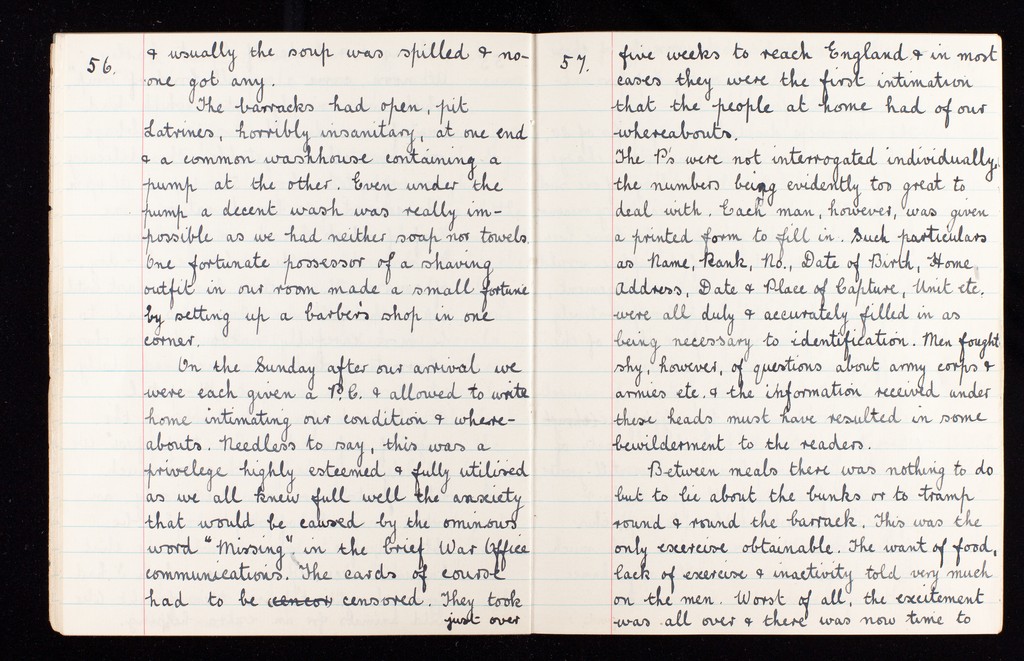 56.
& usually the soup was spilled & no-
one got any.
The barracks had open, pit
latrines, horribly insanitary, at one end
& a common washhouse containing a
pump at the other. Even under the
pump a decent wash was really im-
possible as we had neither soap nor towels.
One fortunate possessor of a shaving
outfit in our room made a small fortune
by setting up a barber's shop in one
corner.
On the Sunday after our arrival we
were each given a P.C. & allowed to write
home intimating our condition & where-
abouts. Needless to say, this was a
privelege highly esteemed & fully utilised
as we all knew full well the anxiety
that would be caused by the ominous
word "Missing" in the brief War Office
communications. The cards of course
had to be censor censored. They took
just over
57.
five weeks to reach England & in most
cases they were the first intimation
that the people at home had of our
whereabouts.
The P's were not interrogated individually,
the numbers being evidently too great to
deal with. Each man, however, was given
a printed form to fill in. Such particulars
as Name, Rank, No., Date of Birth, Home
Address, Date & Place of Capture, Unit etc.
were all duly & accurately filled in as
being necessary to identification. Men fought
shy, however, of questions about army corps &
armies etc. & the information received under
these heads must have resulted in some
bewilderment to the readers.
Between meals there was nothing to do
but to lie about the bunks or to tramp
round & round the barrack. This was the
only exercise obtainable. The want of food,
lack of exercise & inactivity told very much
on the men. Worst of all, the excitement
was all over & there was now time to